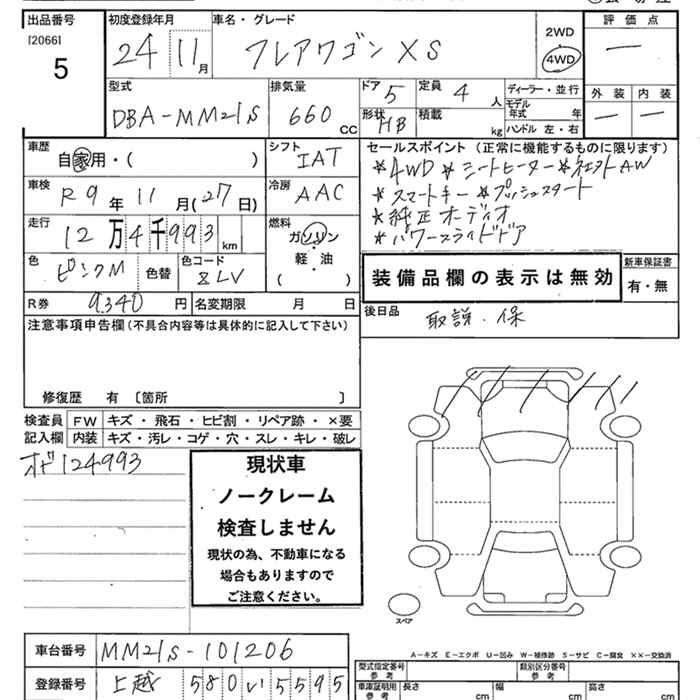 出品番号 初度登録年月 車名・グレード 評価点
[2066] 5 24 11月 フレアワゴン XS 2WD 4WD ー
型式 排気量 ドア 5 定員 4人 ディーラー・並行 外装 内装
DBA-MM21S 660 CC 形状 HB 積載 kg モデル年式 年 ハンドル 左・右 ー ー
車歴 自家用・( ) シフト IAT セールスポイント (正常に機能するものに限ります)
車検 R9年11月(27日) 冷房 AAC *4WD *シートヒーター *社外AW
*スマートキー *プッシュスタート
走行 12万4千993km 燃料 ガソリン *純正オーディオ
軽・油 *パワースライドドア
色 ピンクM 色替 色コード ZLV ( ) 装備品欄の表示は無効 新車保証書 有・無
R券 9,340円 名変期限 月 日 後日品 取説.保
注意事項申告欄(不具合内容等は具体的に記入して下さい)
修復歴 有 〔箇所 〕
検査員記入欄 FW キズ・飛石・ヒビ割・リペア跡・×要
内装 キズ・汚レ・コゲ・穴・スレ・キレ・破レ
オド124993
現状車
ノークレーム
検査しません
現状の為、不動車になる
場合もありますので
ご注意ください。
スペア
A-キズ E-エクボ U-凹み W-補修跡 S-サビ C-腐食 ××-交換済
車台番号 MM21S-101206 型式指定番号 参考 類別区分番号 参考
登録番号 上越 580 い 5595 車庫証明用 参考 長さ cm 幅 cm 高さ cm